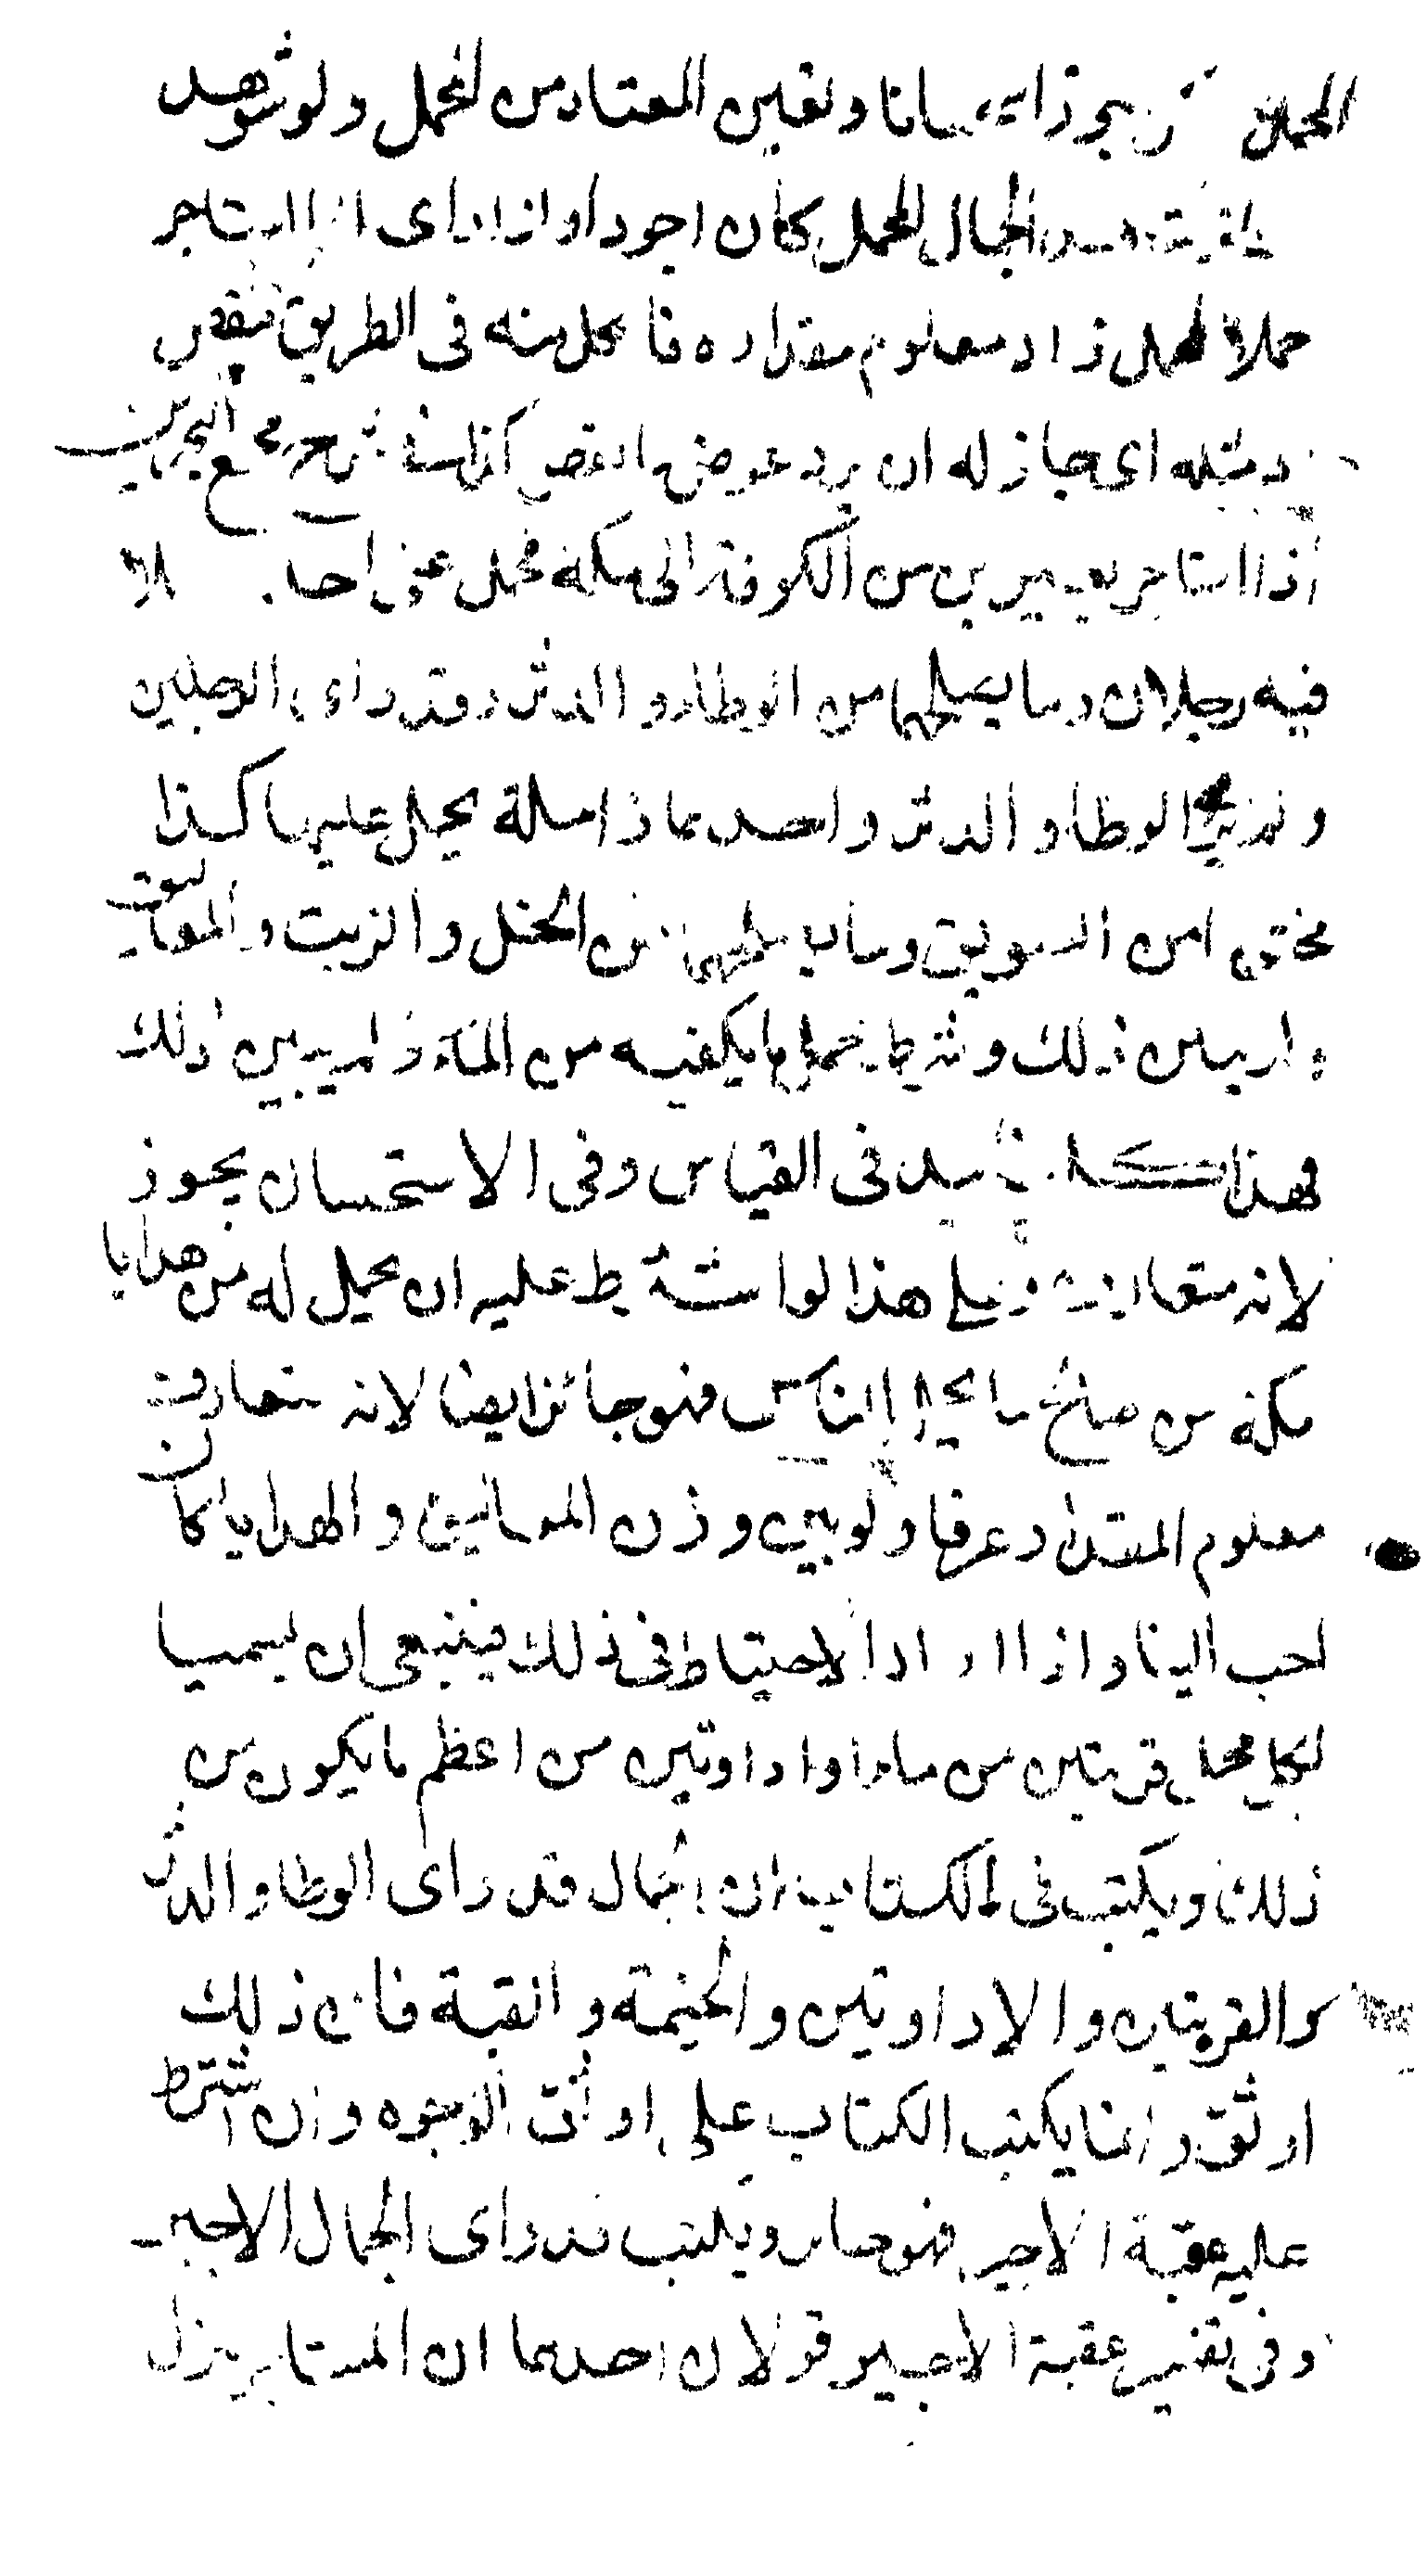 يجوز استحسانا وتعين المعتاد من المحمل ولو شوهد
الجمال المحمل كان اجود او اذا راى استاجر
حملا لحمل زاد معلوم مقداره فاكل منه في الطريق فنقص
رد مثله اى جاز له ان يرد عوض النقص كذا في شرح مجمع البحرين
اذا استاجر بعيرين من الكوفة الى مكة فحمل على احد
فيه رجلان وما يصلحهما من الوطاء والدثر وقد راى الرجلين
ولم ير الوطا والدثر واحدهما زاملة يحمل عليها كذا
مختوما من السويق وما يصلحهما من الخل والزيت والمعاليق
ولم يبين ذلك وشرط حمل ما يكفيه من الماء ولم يبين ذلك
فهذا كله فاسد فى القياس وفى الاستحسان يجوز
لانه متعارف وعلى هذا لو اشترط عليه ان يحمل له من هدايا
مكة من صالح ما يحمل الناس فهو جائز ايضا لانه متعارف
معلوم المقدار عرفا ولو بين وزن المعاليق والهدايا كان
احب الينا واذا اراد الاحتياط فى ذلك فينبغى ان يسميا
لكل محمل قربتين من ماء او اداوتين من اعظم ما يكون من
ذلك ويكتب فى الكتاب ان الجمال قد راى الوطا والدثر
والقربتين والاداوتين والخيمة والقبة فان ذلك
اوثق وانما يكتب الكتاب على اوثق الوجوه وان اشترط
عليه عقبة الاجير فهو جائز ويكتب قد راى الجمال الاجير
وفى تفسير عقبة الاجير قولان احدهما ان المستاجر ينزل